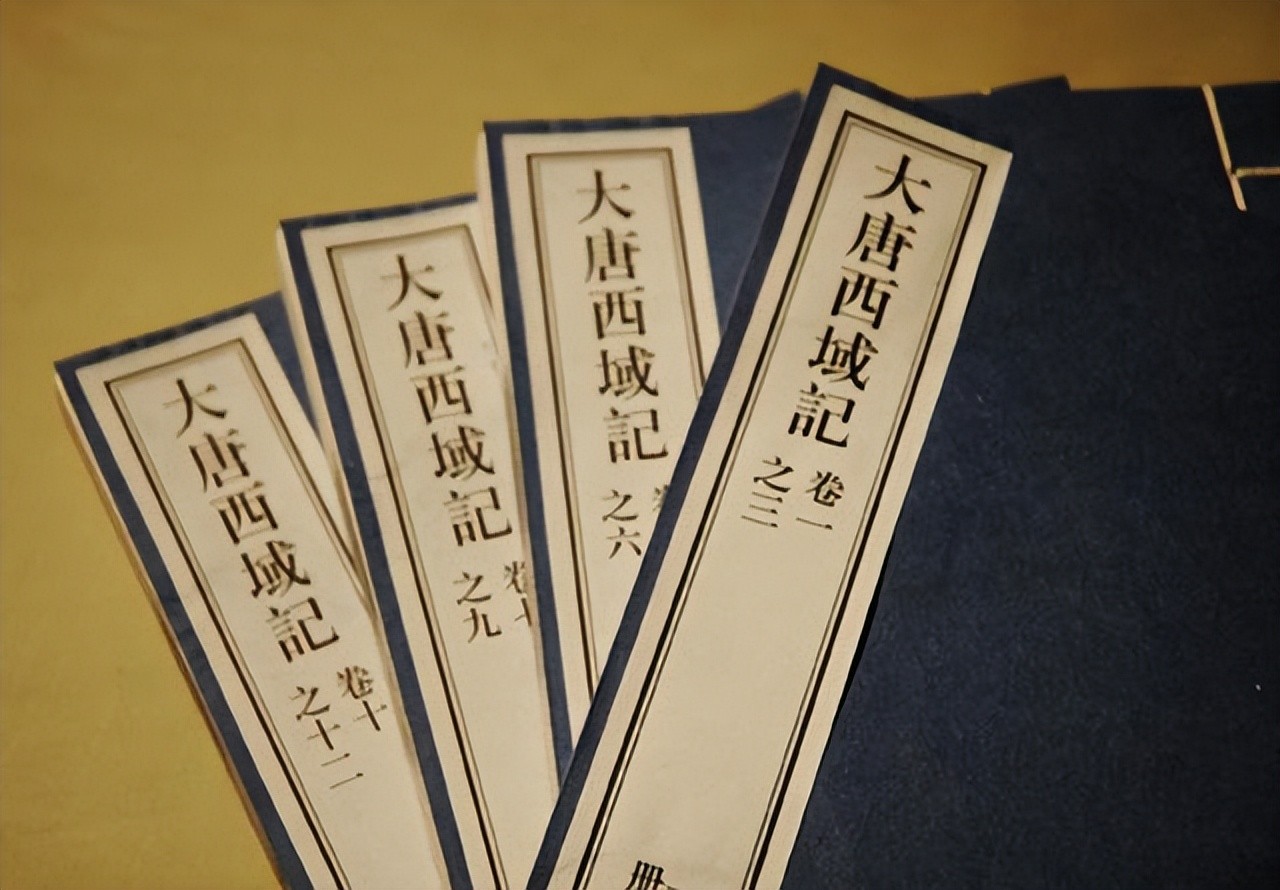 大唐西域記
卷一
之三
冊一
大唐西域記
卷
之六
大唐西域記
卷七
之九
大唐西域記
卷十
之十二